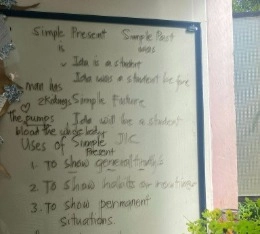 Simple Present Simple Past
is was
Ida is a student
Ida was a student before
man has
2 kidneys Simple Future
The pumps Ida will be a student
blood the whole body
Uses of Simple
Present
1. To show general truths
2. To show habits or
3. To show permanent
situations.